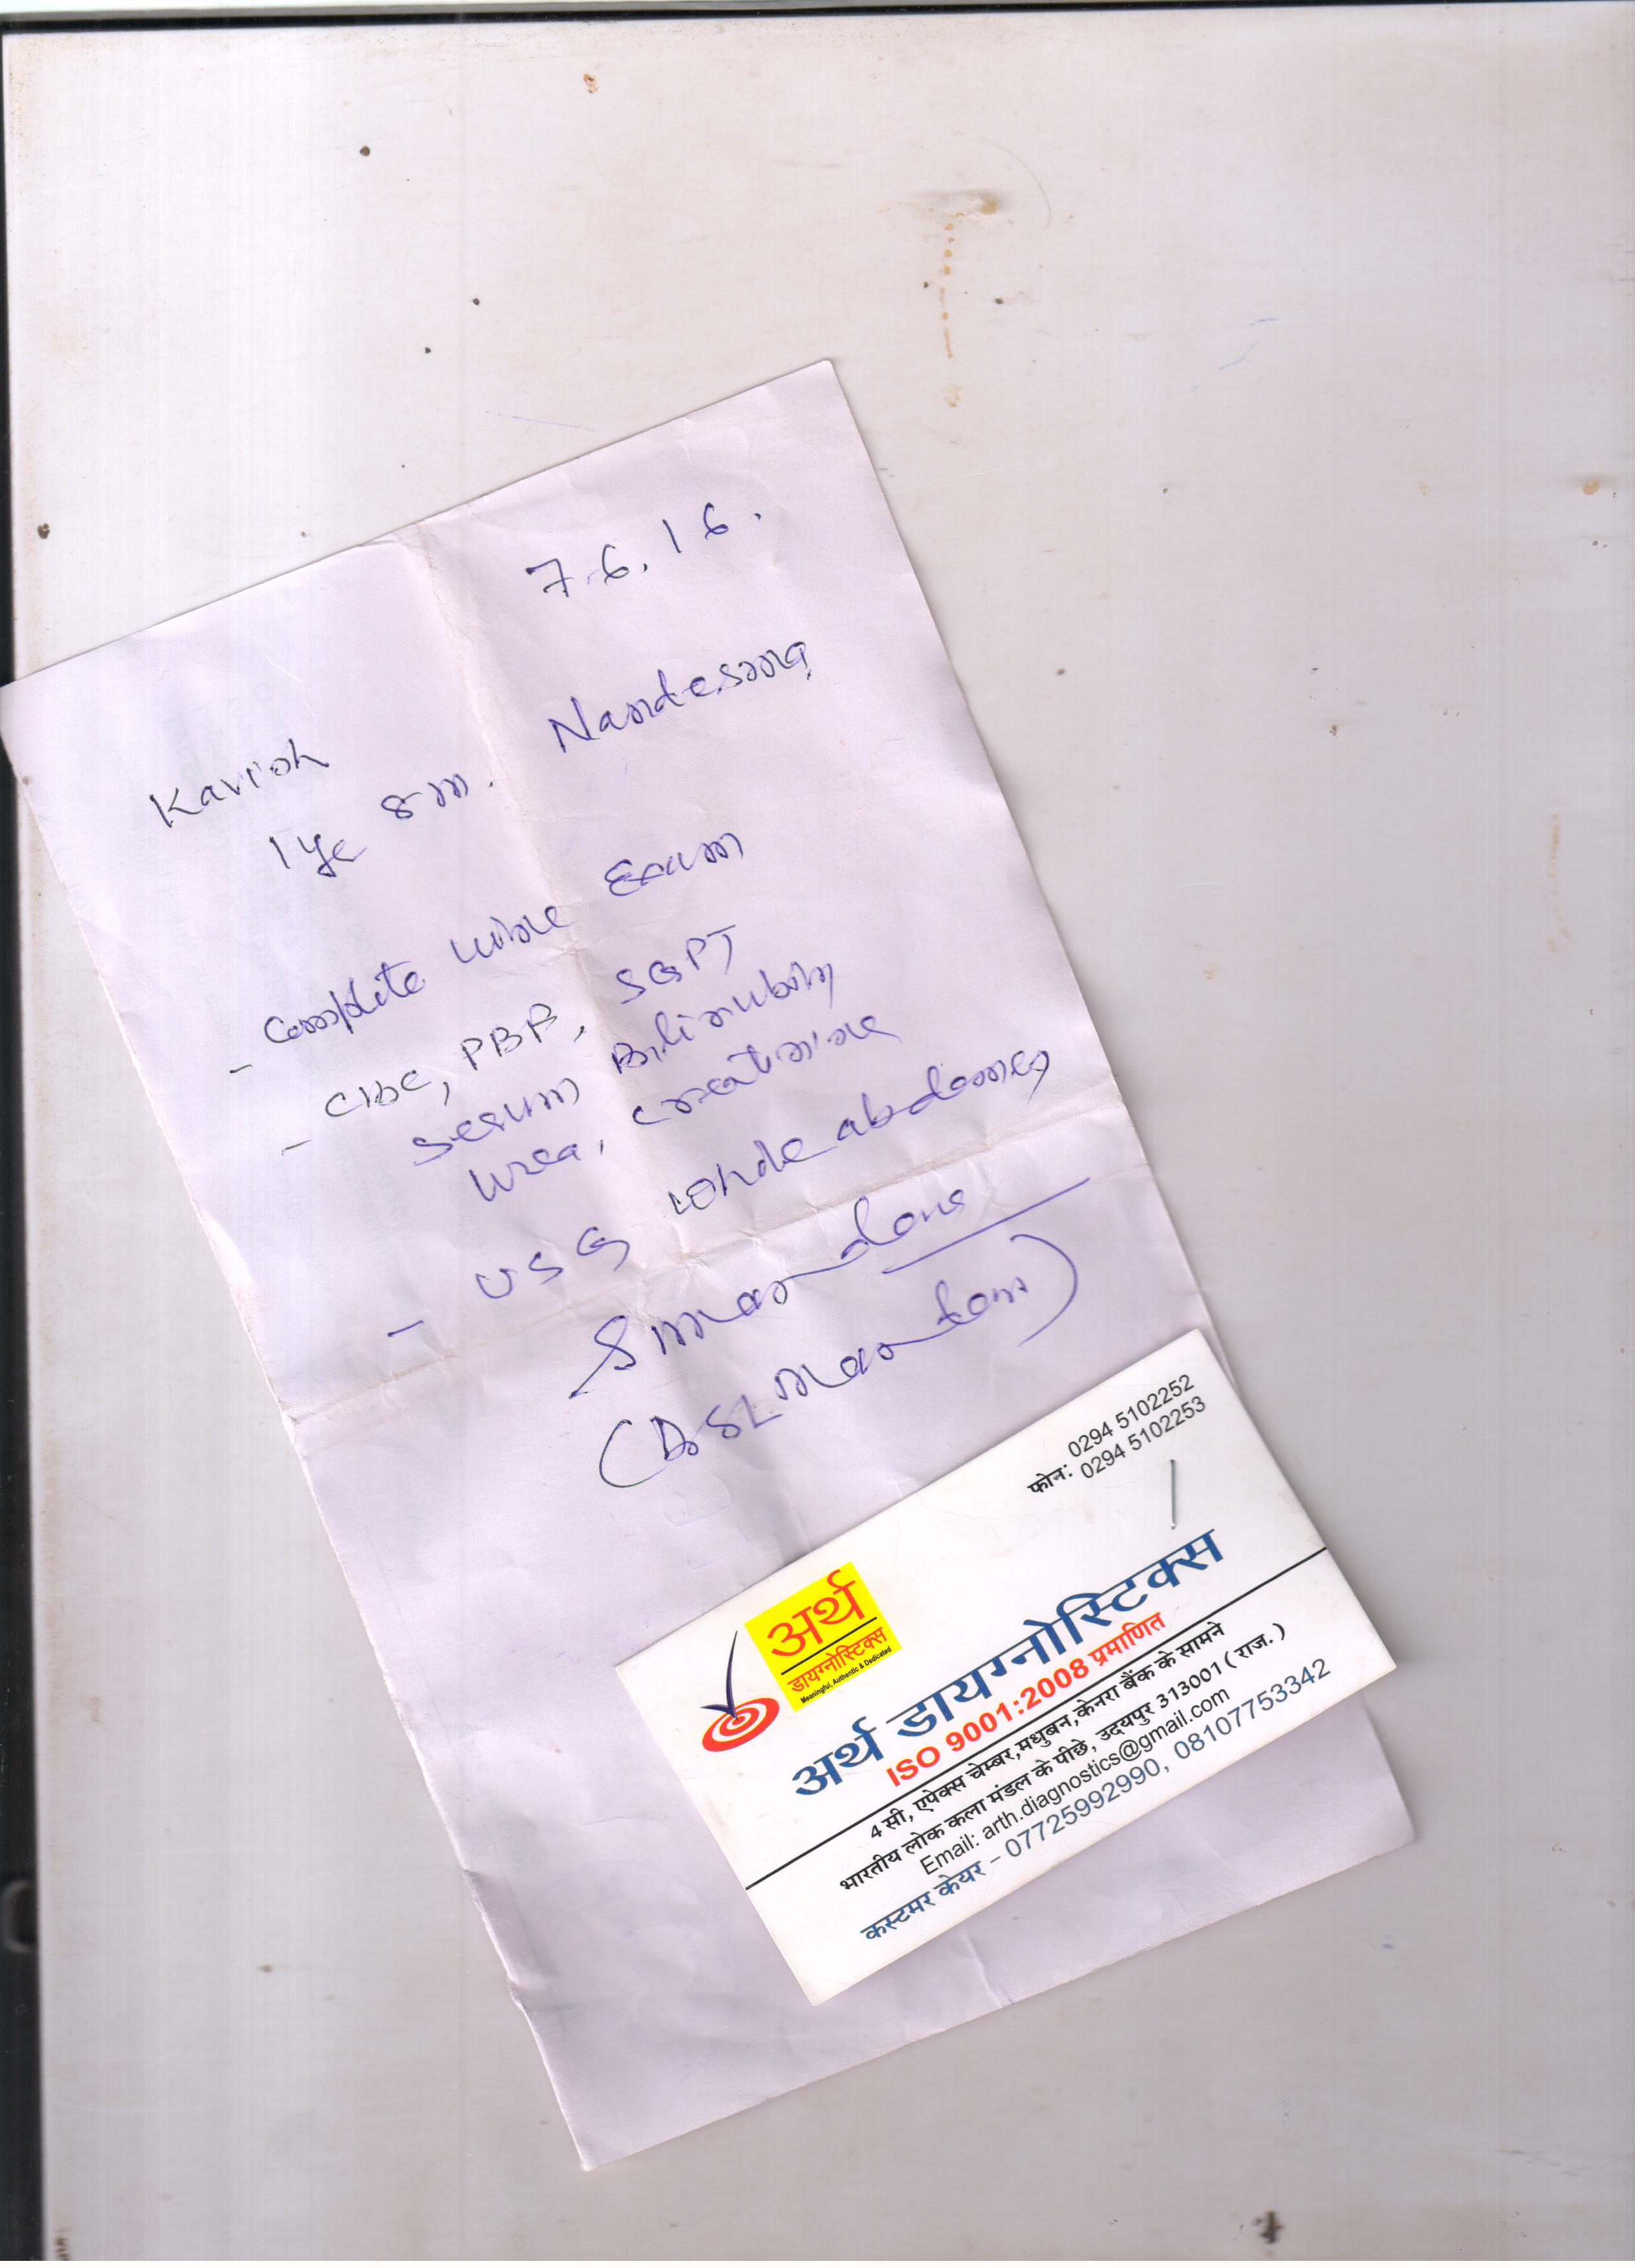 7.6.16.
Kavish Nandesma
1 yr 8 m.
- Complete urine Exam
- CBC, PBF, SGPT
Serum Bilirubin
Urea, creatinine
- USG whole abdomen
फोन: 0294 5102252
0294 5102253
अर्थ
डायग्नोस्टिक्स
Meaningful, Authentic & Dedicated
अर्थ डायग्नोस्टिक्स
ISO 9001:2008 प्रमाणित
4 सी, एपेक्स चेम्बर,मधुबन,केनरा बैंक के सामने
भारतीय लोक कला मंडल के पीछे, उदयपुर 313001 ( राज. )
Email: arth.diagnostics@gmail.com
कस्टमर केयर – 07725992990, 08107753342